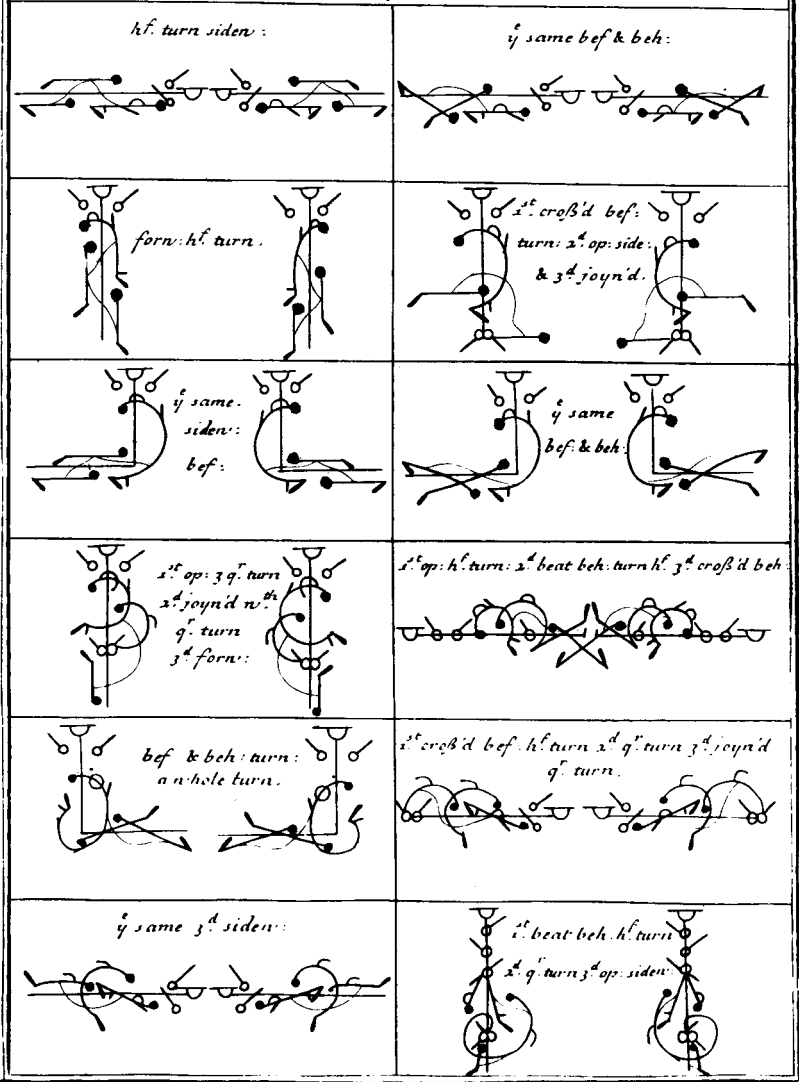 hf. turn siden:
ye same bef & beh:
forn: hf. turn.
1st. croß'd bef:
turn: 2d. op: side:
& 3d. joyn'd.
ye same.
siden:
bef:
ye same
bef: & beh:
1st. op: 3 qr. turn
2d. joyn'd wth.
qr. turn
3d. forn:
1st. op: hf. turn: 2d. beat beh: turn hf. 3d. croß'd beh:
bef & beh: turn:
a whole turn.
1st. croß'd bef: hf. turn 2d. qr. turn 3d. joyn'd
qr. turn.
ye same 3d. siden:
1st. beat beh. hf. turn
2d. qr. turn 3d. op: siden: